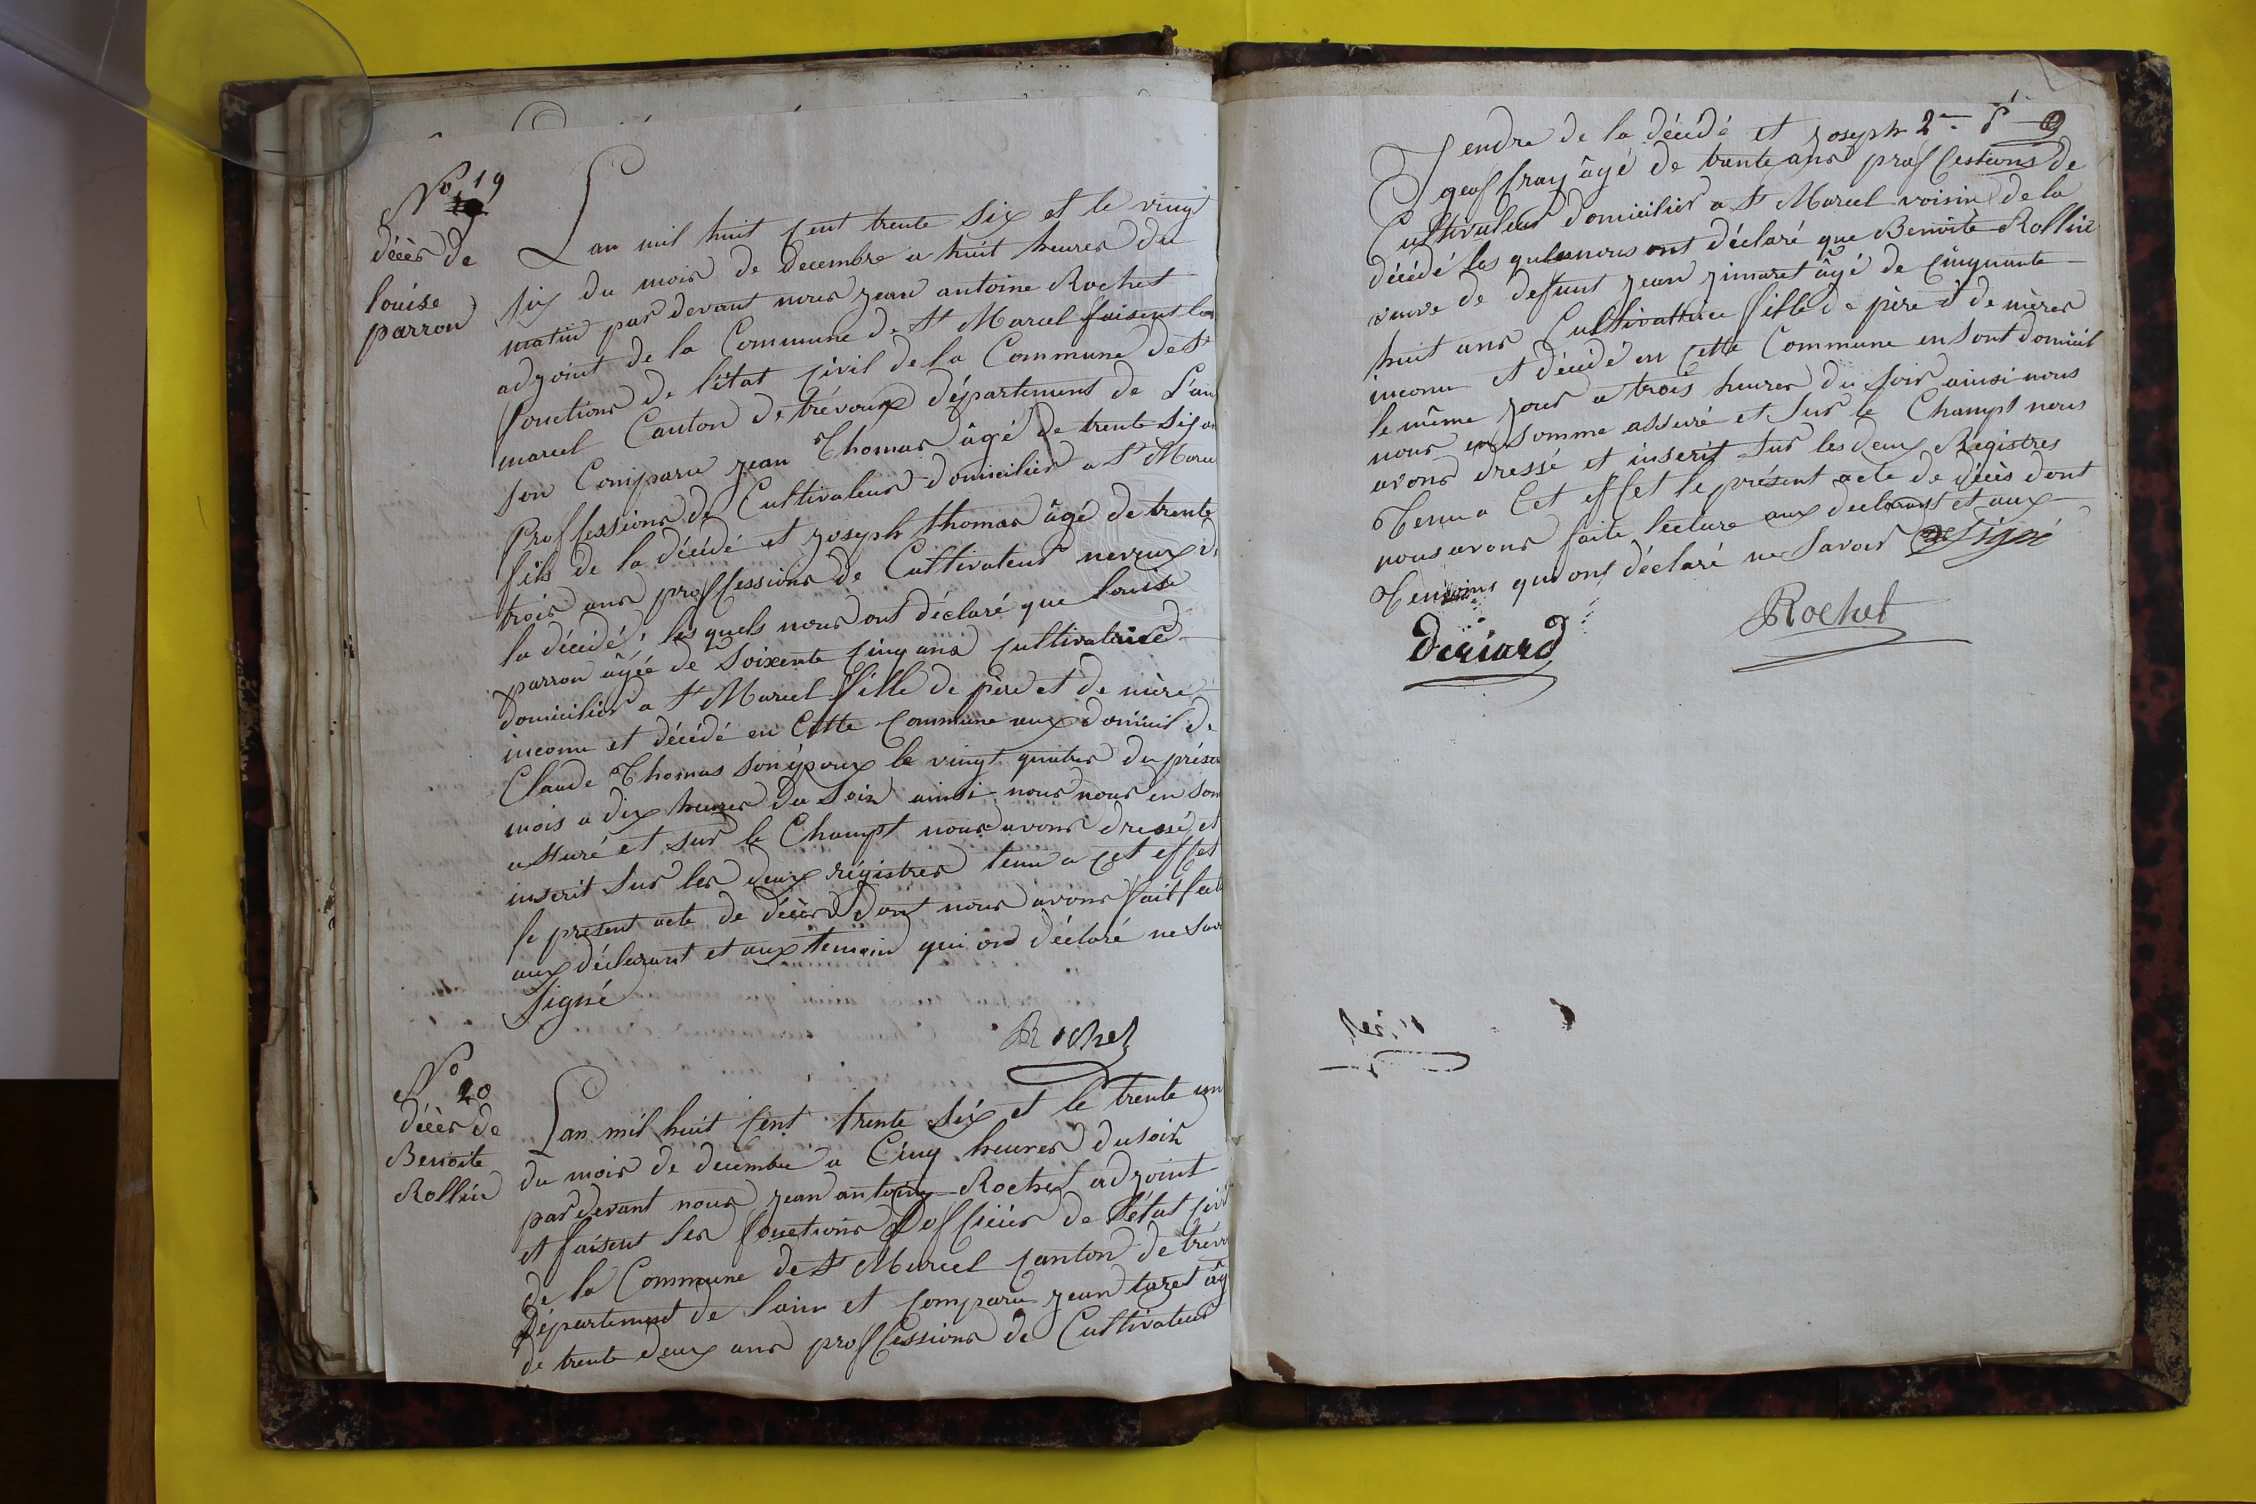 No 19
décès de
louise
parron
Lan mil huit cent trente six et le vingt
six du mois de decembre a huit heures du
matin par devant nous jean antoine Rochet
adjoint de la Commune de St Marcel faisent les
fonctions de l'état civil de la Commune de St
marcel Canton de trévoux département de L'ain
son Comparu jean Thomas âgé de trente six an
Proffessions de Cultivateur domicilier a St Marcel
fils de la décédé et joseph thomas âgé de trente
trois ans proffessions de Cultivateur neveux de
la décédé, les quels nous ont déclaré que louise
parron âgée de soixente cinq ans cultivatrice
domicilier a St Marcel fille de père et de mère
inconu et décédé en Cette Commune aux domicil de
Claude Thomas son époux le vingt quatre du présen
mois a dix heures du soir ainsi nous nous en som
assuré et sur le Champt nous avons dressé et
inscrit sur les deux régistres tenu a cet effet
le présent acte de décès dont nous avons fait lect
aux déclarant et aux temoin qui ont déclaré ne savoir
signé
Rochet
No 20
décès de
Benoite
Rollin
Lan mil huit cent trente six et le trente un
du mois de decembre a Cinq heures du soir
par devant nous jean antoine Rochet adjoint
et faisent les fonctions d'officier de l'état civil
de la Commune de St Marcel canton de trévo
Département de lain et comparu jean taret âg
de trente deux ans proffessions de Cultivateur
gendre de la décédé et joseph 2
geoffray âgé de trente ans proffessions de
Cultivateur domicilier a St Marcel voisin de la
décédé les quels nous ont déclaré que Benoite Rollin
veuve de defunt jean jimaret âgé de cinquante
huit ans Cultivattrice fille de père et de mères
inconu et décédé en cette Commune en sont domicil
le même jour a trois heures du soir ainsi nous
nous en somme assuré et sur le Champt nous
avons dressé et inscrit sur les deux Registres
Tenu a Cet effet le présent acte de décès dont
nous avons faite lecture aux declarant et aux
Temoins qui ont déclaré ne savoir signé
deriard
Rochet